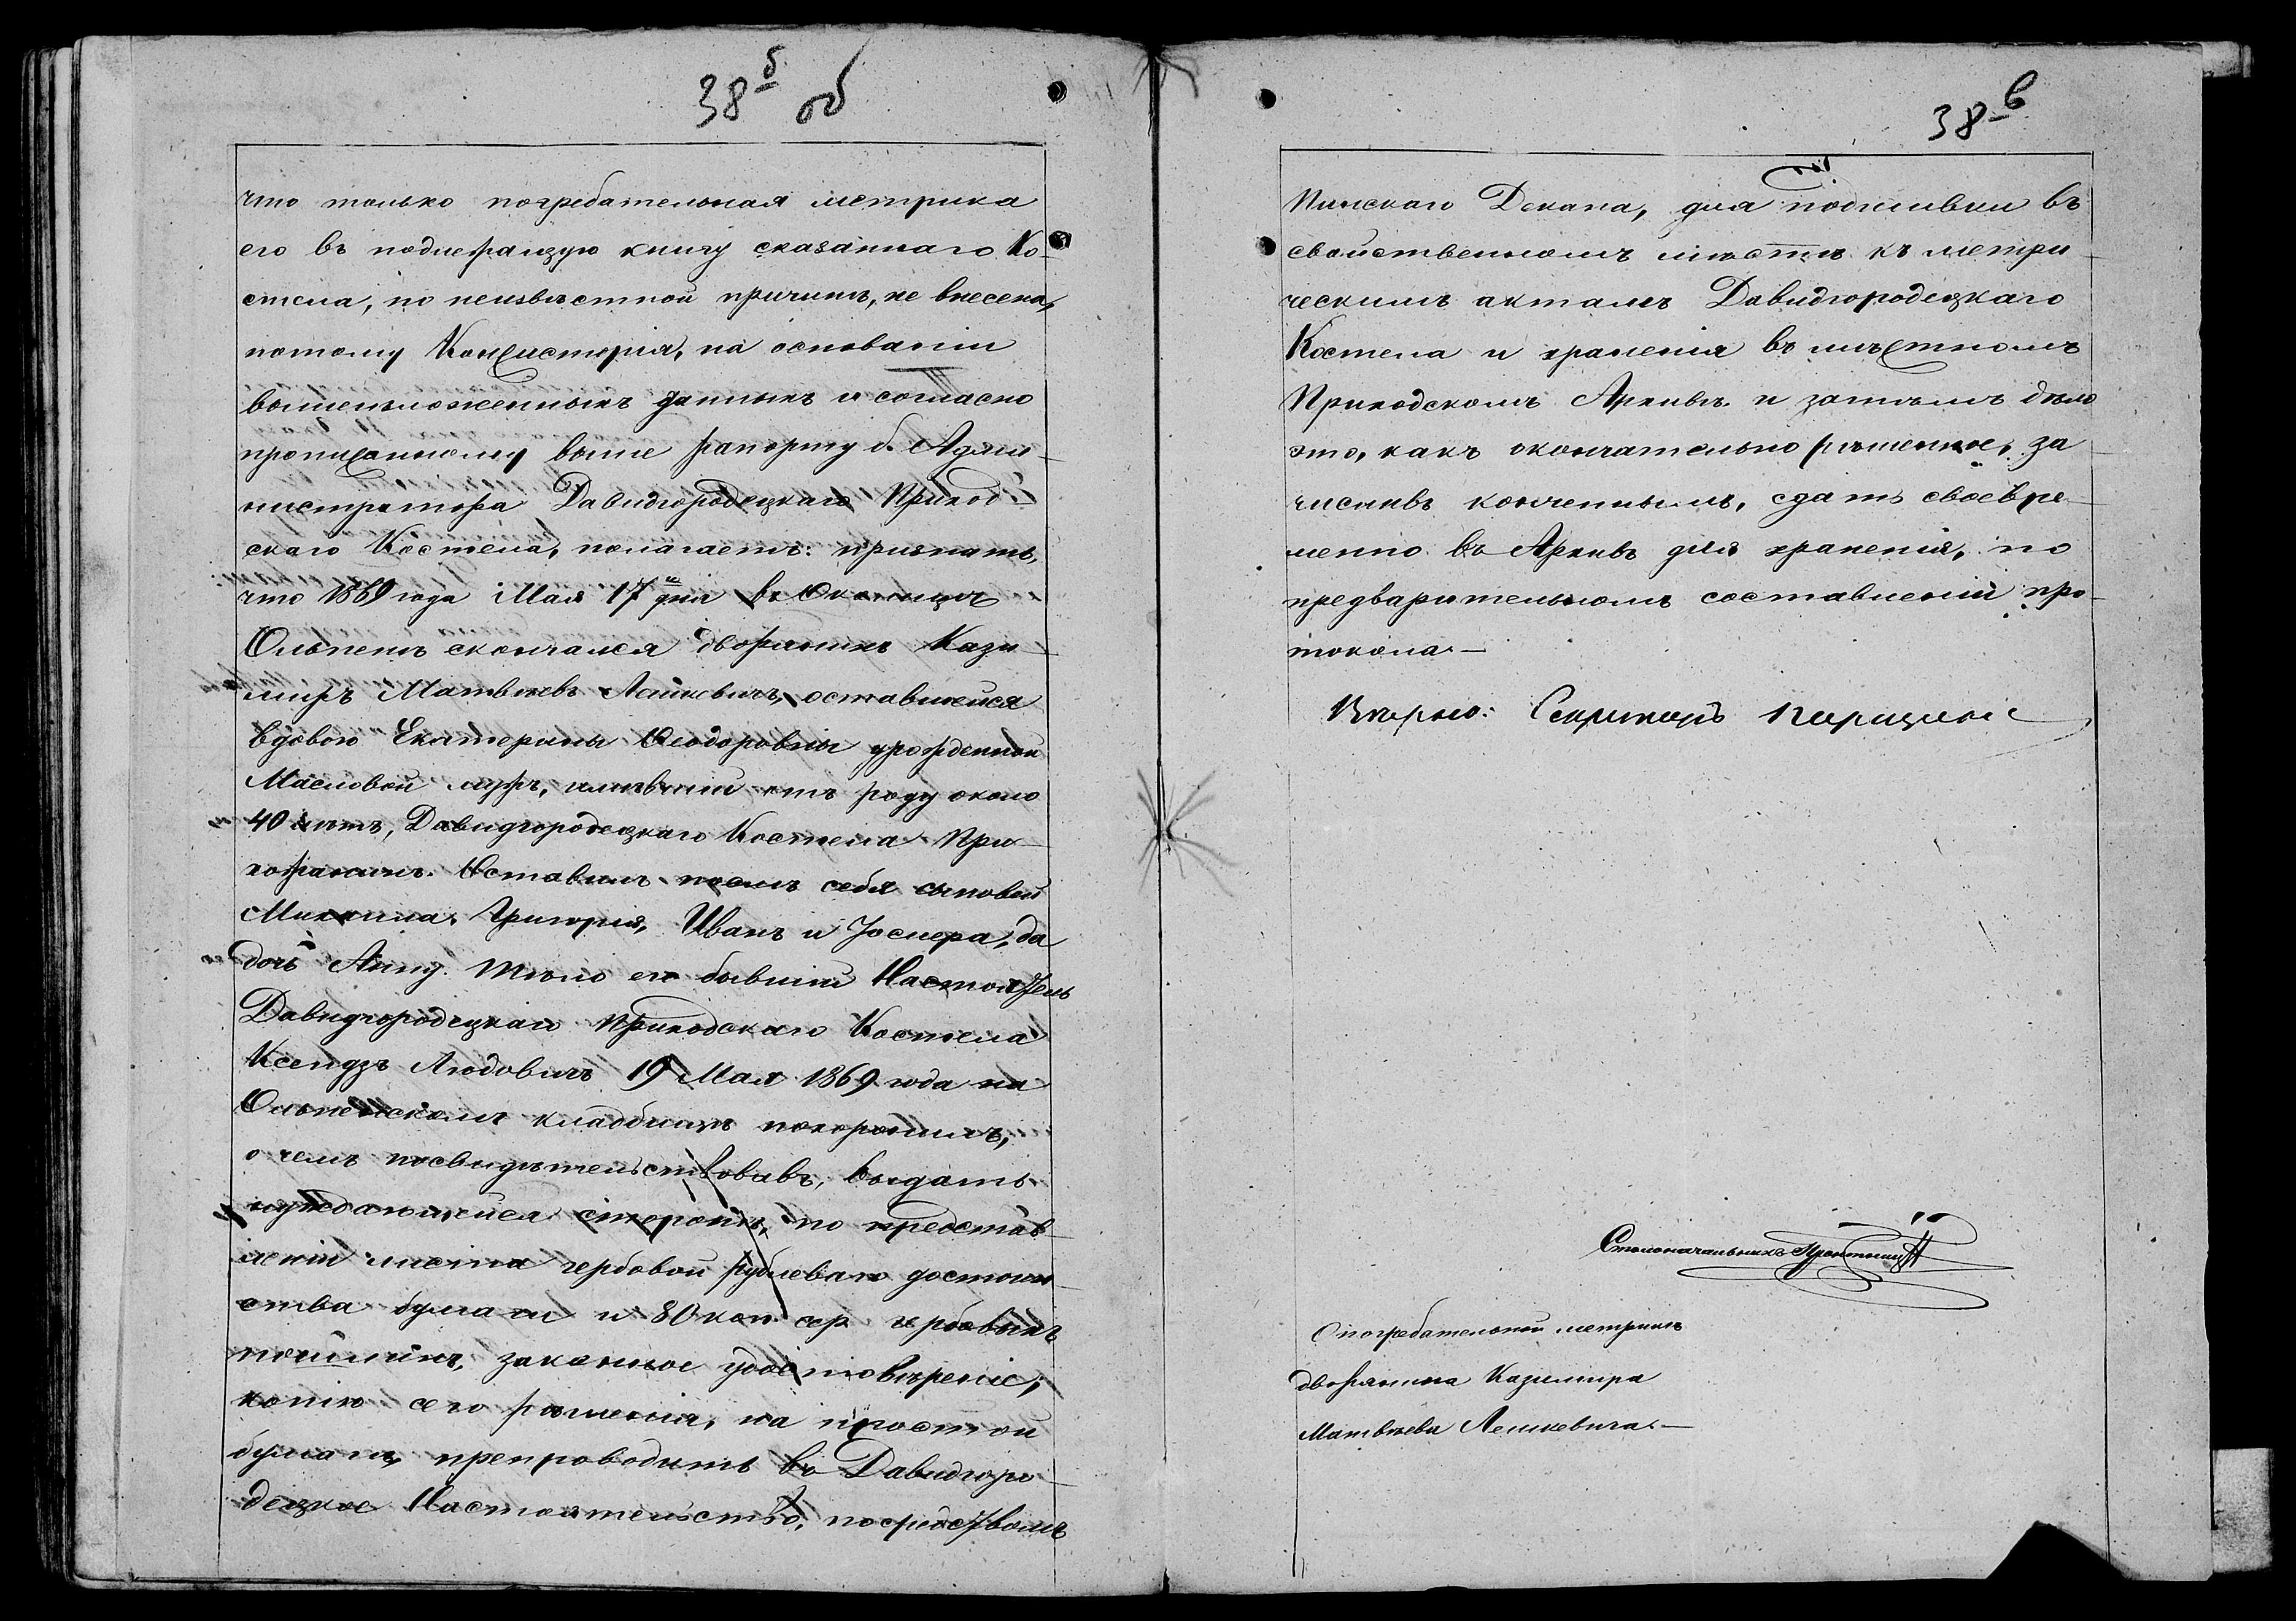 38б об
что только погребательная метрика
его въ подлежащую книгу сказаннаго Ко-
стела, по неизвѣстной причинѣ, не внесена,
потому Консисторія, на основаніи
вышеизложенныхъ данныхъ и согласно
прописанному выше рапорту б. Адми-
нистратора Давидгородецкаго Приход-
скаго Костела, полагаетъ: признать,
что 1869 года Мая 17 дня въ Околицѣ
Ольпень скончался дворянинъ Кази-
миръ Матвѣевъ Лешкевичъ, оставшейся
вдовою Екатерины Ѳеодоровны урожденной
Масловой мужъ, имѣвшій отъ роду около
40 лѣтъ, Давидгородецкаго Костела При-
хожанинъ. Оставилъ послѣ себя сыновей
Михаила, Григорія, Ивана и Іосифа, да
дочь Анну. Тѣло его бывшій Настоятель
Давидгородецкаго Приходскаго Костела
Ксендзъ Людовичъ 19 Мая 1869 года на
Ольпенскомъ кладбищѣ похоронилъ,
о чемъ посвидѣтельствовавъ, выдать
нуждающейся сторонѣ, по представ-
леніи листа гербовой рублеваго достоин-
ства бумаги и 80 коп. сер. гербовыхъ
пошлинъ, законное удостовѣреніе;
копію сего рѣшенія, на простой
бумагѣ, препроводить въ Давидгоро-
децкое Настоятельство, посредствомъ
38в
Пинскаго Декана, для подшивки въ
свойственномъ мѣстѣ къ метри-
ческимъ актамъ Давидгородецкаго
Костела и храненія въ мѣстномъ
Приходскомъ Архивѣ и затѣмъ дѣло
это, какъ окончательно рѣшенное, за-
числивъ конченнымъ, сдать своевре-
менно въ Архивъ для храненія, по
предварительномъ составленіи про-
токола.—
Вѣрно: Секретарь
Столоначальникъ
О погребательной метрикѣ
дворянина Казимира
Матвѣева Лешкевича.—